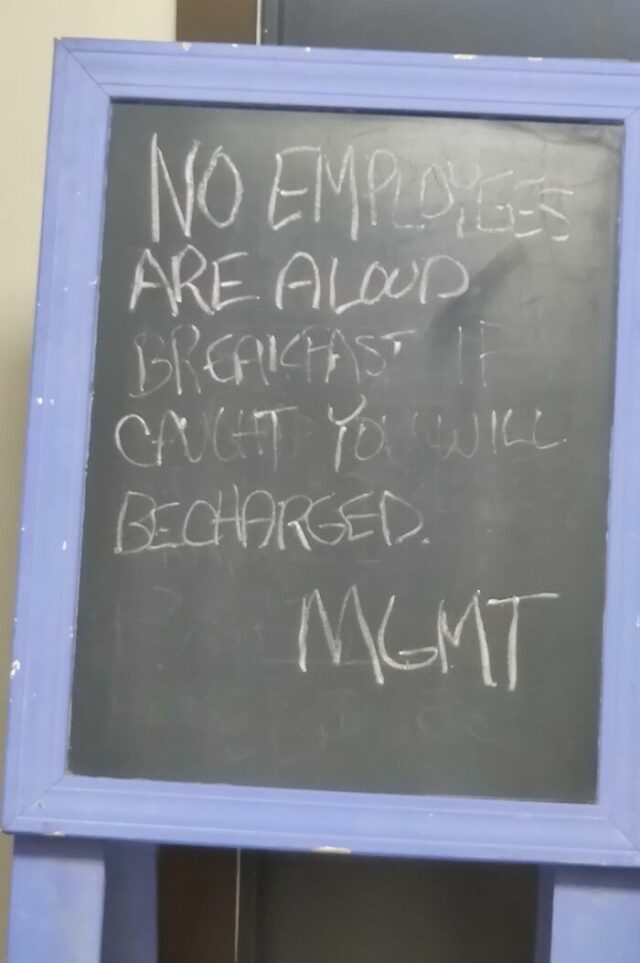 NO EMPLOYEES
ARE ALOUD
BREAKFAST IF
CAUGHT YOU WILL
BECHARGED.
MGMT